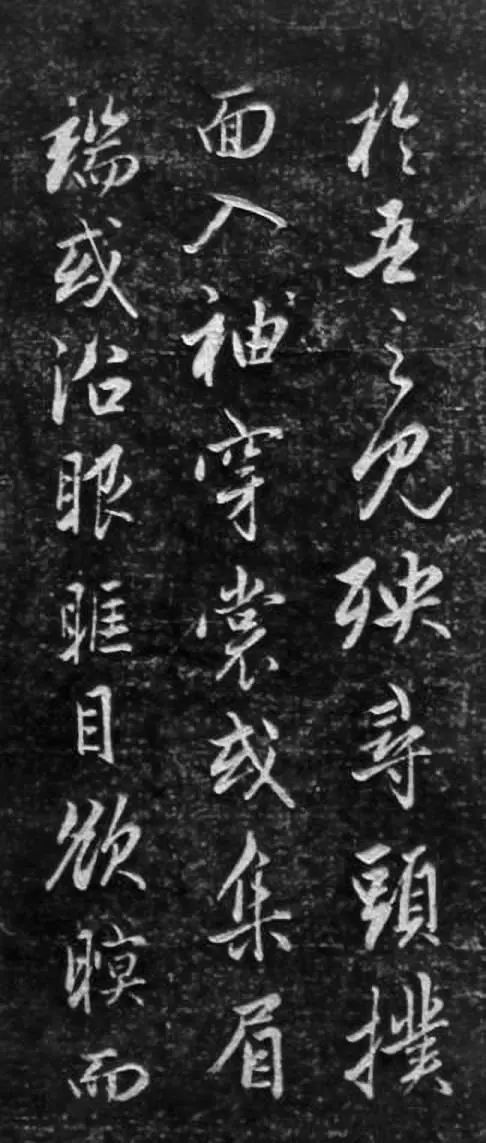 於吾之見殃尋頭撲
面入袖穿裳或集眉
端或沿眼眶目欲瞑而